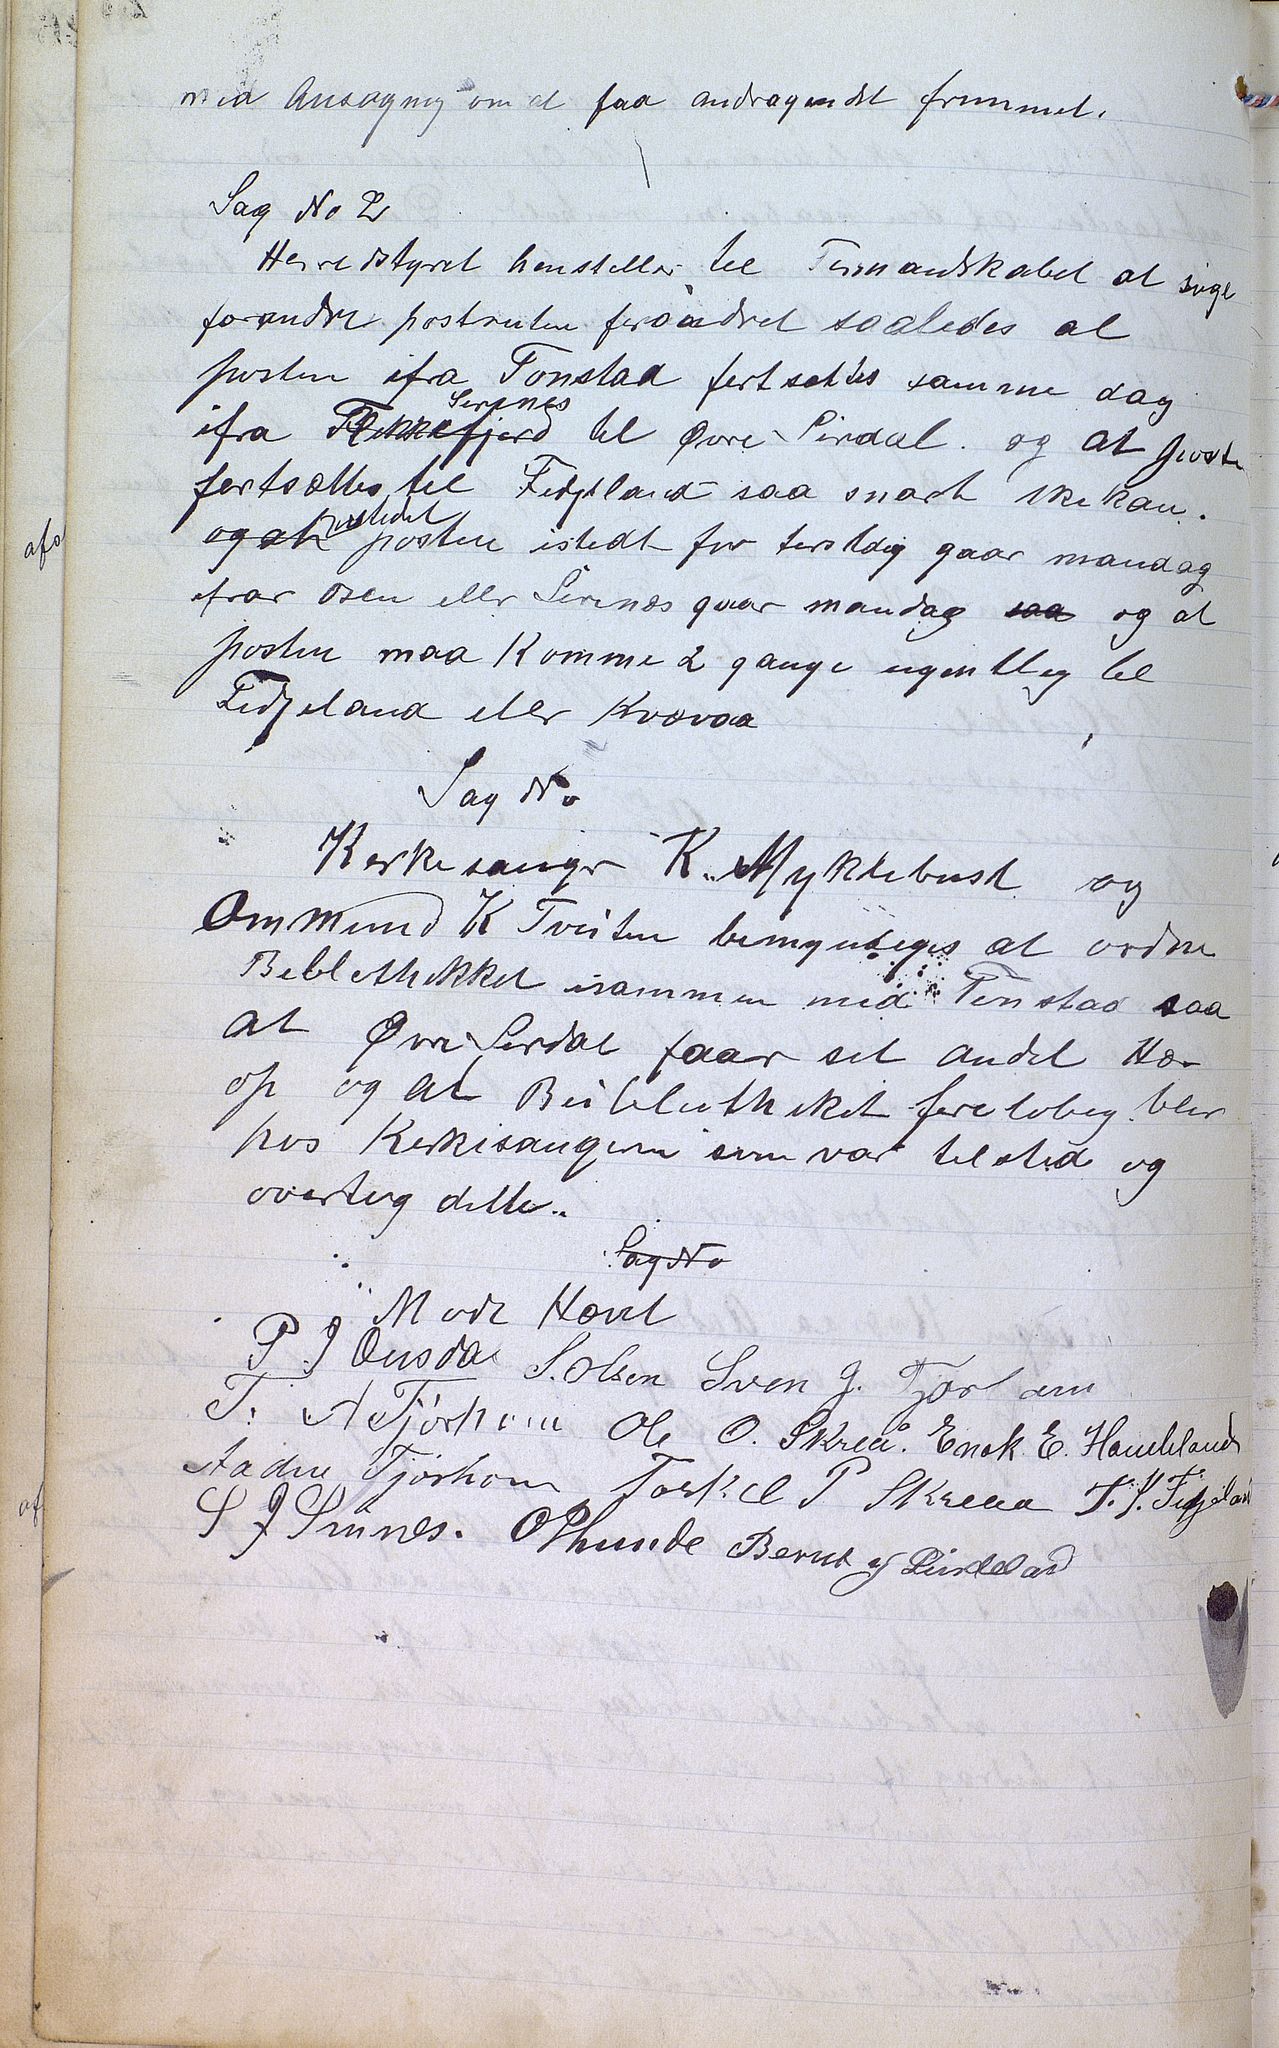 med Ansøgning om at faa andragendet fremmet.
Sag No 2
Herredstyret henstiller til Formandskabet at søge
forandre postruten forandret saaledes at
posten ifra Tonstad fortsettes samme dag
Sirenes
ifra Flekkefjord til Øvre Sirdal. og at posten
fortsættes til Fidjeland saa snart ske kan.
istedet
og at posten istedt for tersdag gaar mandag
ifrar Osen eller Sirenes gaar mandag saa og at
posten maa Komme 2 gange ugentlig til
Fidjeland eller Kvævaa
Sag No
Kerkesanger K. Myklebust og
Ommund K Tveiten bemyndeges at ordne
Beblethekket isammen med Tonstad saa
at Øvre Serdal faar sit andel Hær
op og at Beibleotheket foreløbeg bler
hos Kerkesangeren som var telstede og
overtog dette..
Sag No
Møde Hævet
P J Ousdal S. Olsen Sven J. Tjørhom
T. A Tjørhom Ole O. Skreå. Enok E. Haukeland
Aadne Tjørhom Torkel P Skreaa T. S. Fidjeland
S J Sinnes. O P Lunde Bernt